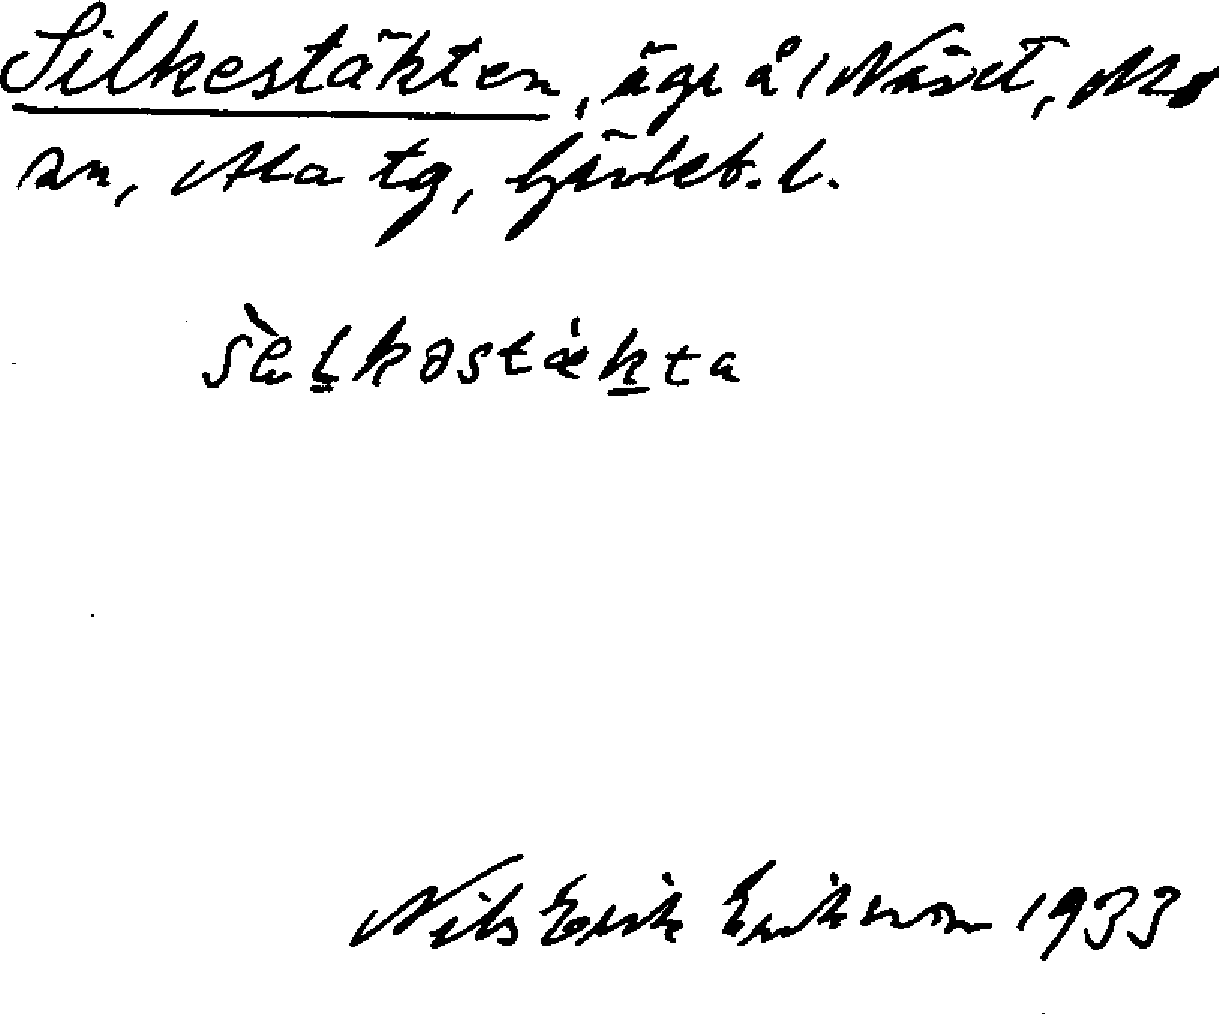 Silkestäkten, ägr å 1 Näset, Mo
sn, Ala tg, Gävleb. l.
sè̱lkəstǽkta
Nils Erik Erikson 1933